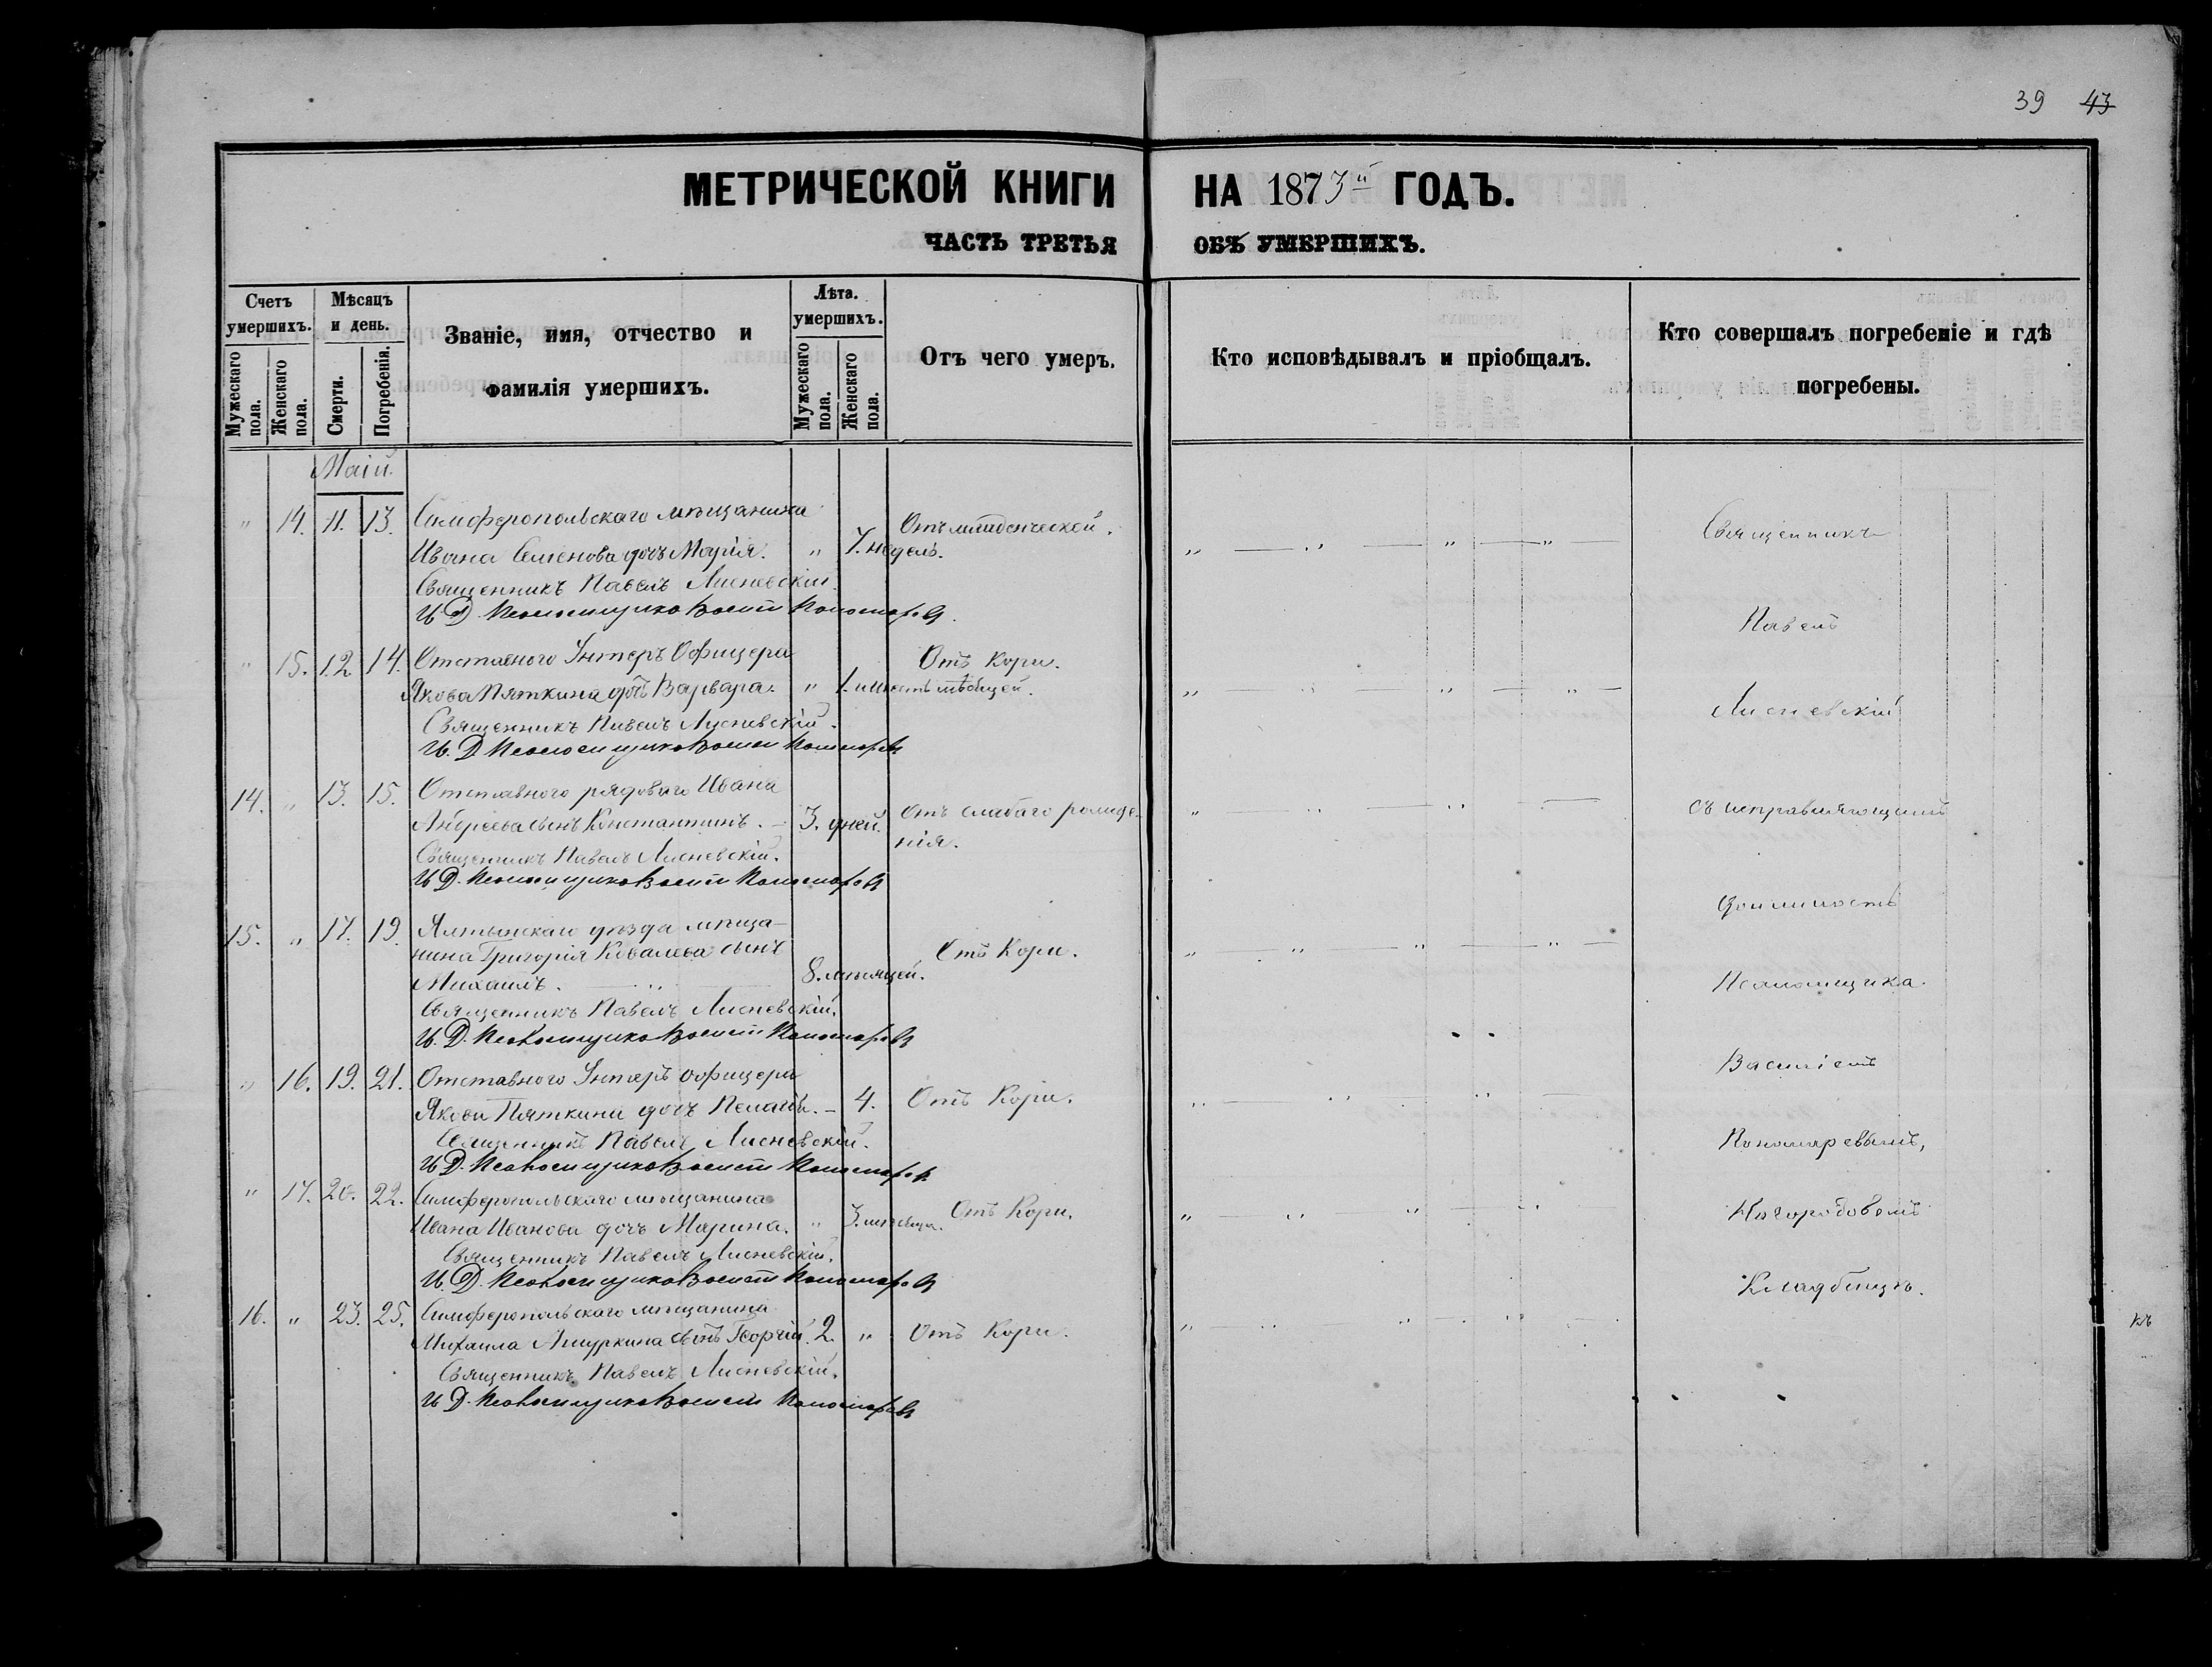 39 43
МЕТРИЧЕСКОЙ КНИГИ НА 1873й ГОДЪ.
ЧАСТЬ ТРЕТЬЯ ОБЪ УМЕРШИХЪ.
Счетъ умершихъ.
Мужескаго пола.
Женскаго пола.
Мѣсяцъ и день.
Смерти.
Погребенія.
Званіе, имя, отчество и
фамилія умершихъ.
Лѣта. умершихъ.
Мужескаго пола.
Женскаго пола.
Отъ чего умеръ.
Кто исповѣдывалъ и пріобщалъ.
Кто совершалъ погребеніе и гдѣ
погребены.
Маій.
" 14. 11. 13. Симферопольскаго мѣщанина Отъ младенческой.
Ивана Семенова дочь Марія. " 7. недель.
Священникъ Павелъ Лисневскій
И. Д. Псаломщика Васил Пономаревъ
" 15. 12. 14. Отставного Унтеръ Офицера Отъ Кори.
Якова Пяткина дочь Варвара. " 1. и шесть мѣсяцей.
Священникъ Павелъ Лисневскій.
И. Д. Псаломщика Васил Пономаревъ
14. " 13. 15. Отставного рядоваго Ивана
Андреева сынъ Константинъ. - 3. дней. Отъ слабаго рожде-
нія.
Священникъ Павелъ Лисневскій.
И. Д. Псаломщика Васил Пономаревъ
15. " 17. 19. Ялтынскаго уѣзда мѣща-
нина Григорія Ковалева сынъ Отъ Кори.
Михаилъ. 8. мѣсяцей.
Священникъ Павелъ Лисневскій.
И. Д. Псаломщика Васил Пономаревъ
" 16. 19. 21. Отставного Унтеръ Оофицера
Якова Пяткина дочь Пелагія. - 4. Отъ Кори.
Священникъ Павелъ Лисневскій.
И. Д. Псаломщика Васил Пономаревъ
" 17. 20. 22. Симферопольскаго мѣщанина
Ивана Иванова дочь Марина. " 3. мѣсяца. Отъ Кори.
Священникъ Павелъ Лисневскій.
И. Д. Псаломщика Васил Пономаревъ
16. " 23. 25. Симферопольскаго мѣщанина
Михаила сынъ Георгій. 2. " Отъ Кори.
Священникъ Павелъ Лисневскій.
И. Д. Псаломщика Васил Пономаревъ
Священникъ
Павелъ
Лисневскій
съ исправляющимъ
должность
Псаломщика
Василіемъ
Пономаревымъ,
На городовомъ
Кладбищѣ.